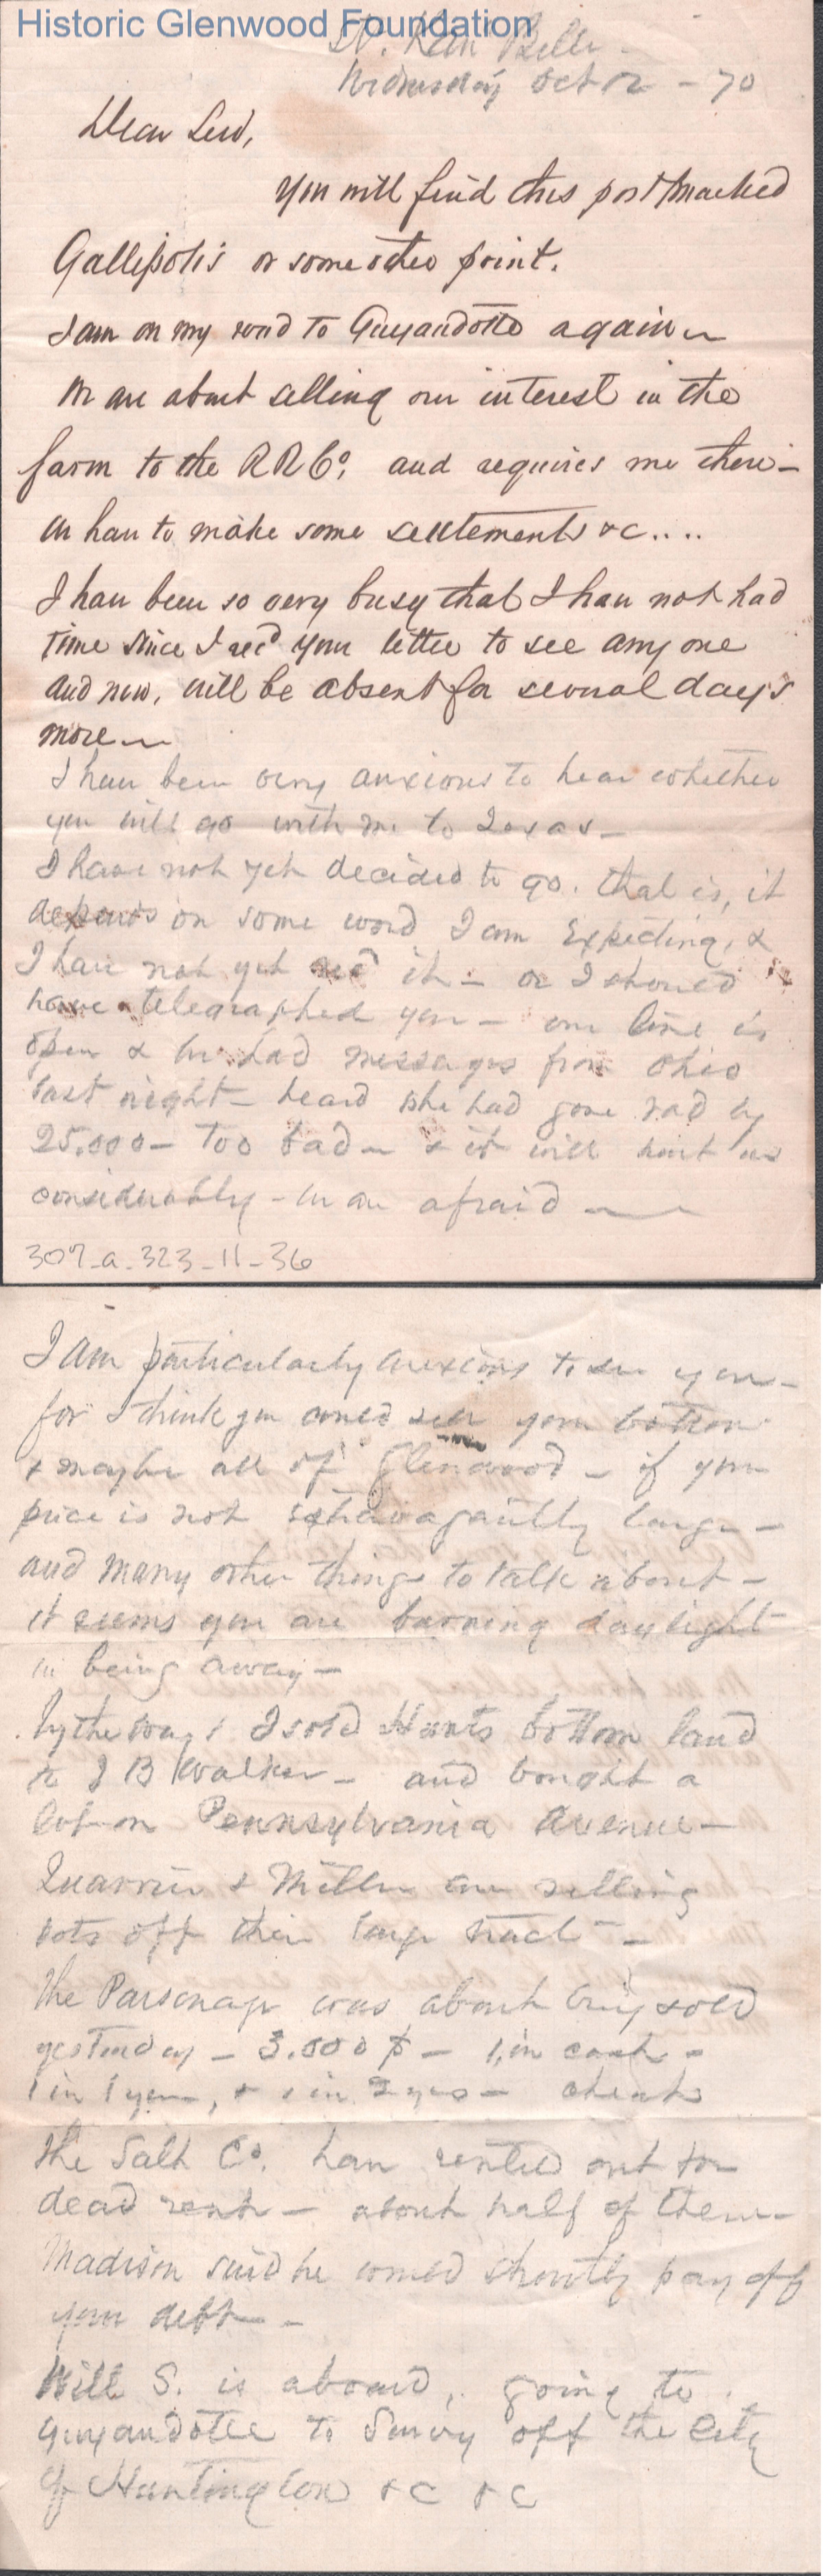 Historic Glenwood Foundation
St. Kan Belle -
Wednesday Oct 12 - 70
Dear Lew,
You will find this postmarked
Gallipolis or some other point.
I am on my road to Guyandotte again
We are about selling our interest in the
farm to the RR Co, and requires me there -
We have to make some settlements &c....
I have been so very busy that I have not had
time since I rec'd your letter to see any one
and now, will be absent for several days
more
I have been very anxious to hear whether
you will go with me to Texas -
I have not yet decided to go. that is, it
depends on some word I am expecting, &
I have not yet rec'd it - or I should
have telegraphed you - our line is
open & we had messages from Ohio
last night - heard she had gone rad by
25.000 - too bad - & it will hurt us
considerably - we are afraid
307-a-323-11-36
I am particularly anxious to see you -
for I think you could sell your bottom
& maybe all of Glenwood - if your
price is not extravagantly large -
and many other things to talk about -
it seems you are burning daylight
in being away -
By the way, I sold Hunts bottom land
to J B Walker - and bought a
lot on Pennsylvania Avenue -
Quarrier & Miller are selling
lots off their large tract -
The Parsonage was about being sold
yesterday - 3.000 $ - 1, in cash -
1 in 1 year, & 1 in 2 yrs - cheap
The Salt Co. have rented out for
dead rent - about half of them -
Madison said he would shortly pay off
your debt -
Will S. is aboard, going to
Guyandotte to Survey off the City
of Huntington &c &c